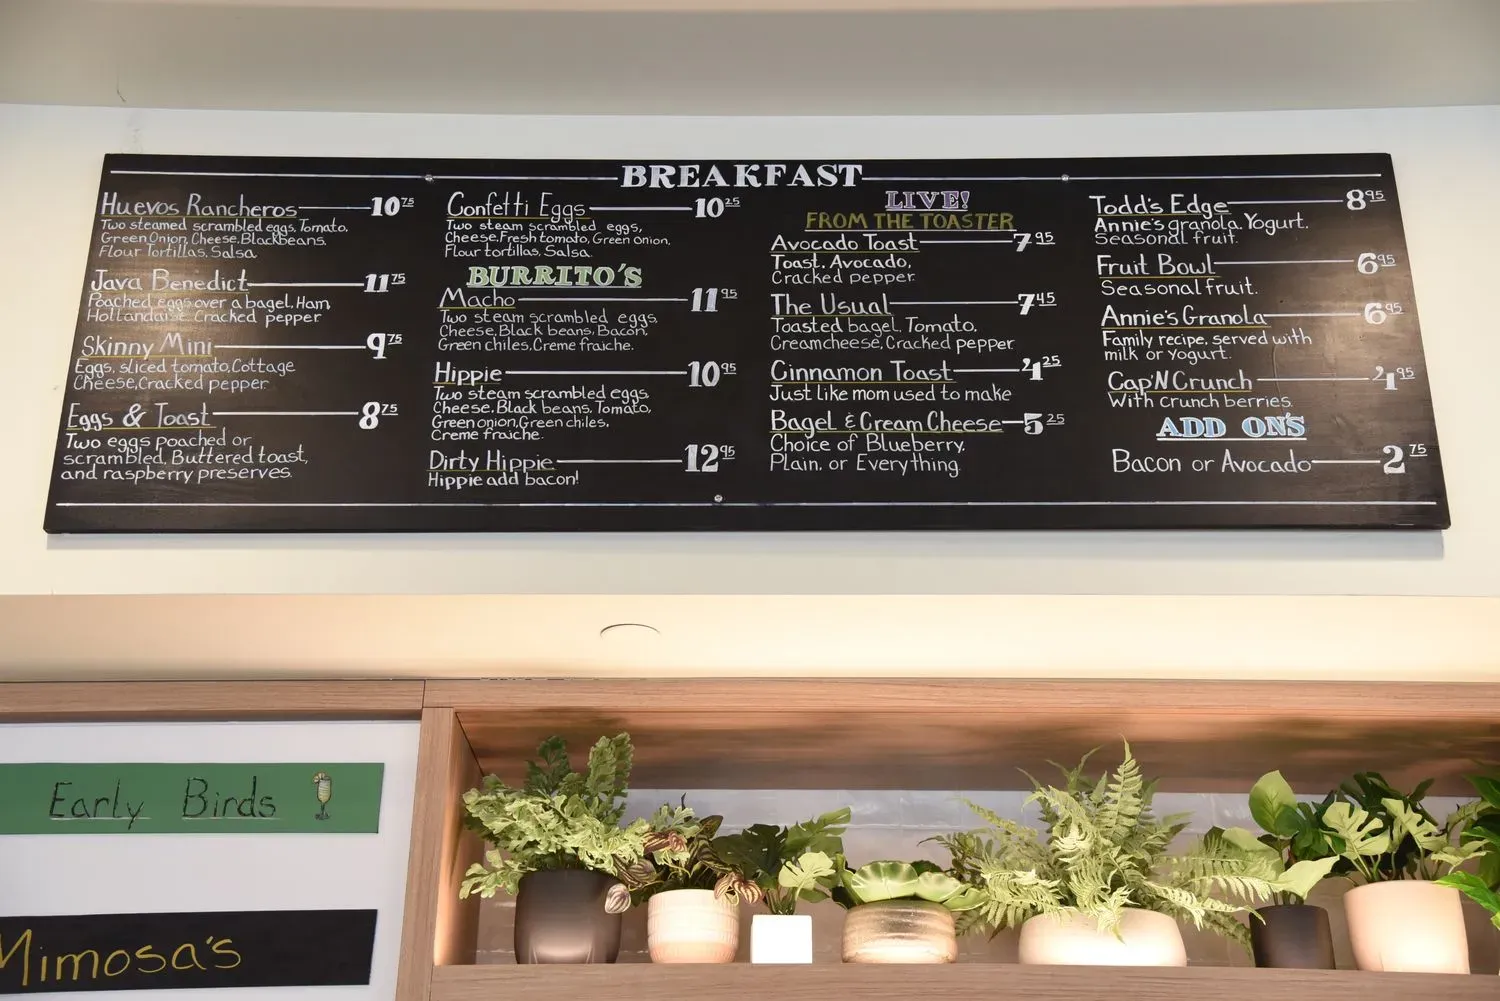 BREAKFAST
Huevos Rancheros 10 75
Two steamed scrambled eggs, Tomato,
Green Onion, Cheese, Blackbeans,
Flour Tortillas, Salsa
Java Benedict 11 75
Poached eggs over a bagel, Ham,
Hollandaise, Cracked pepper
Skinny Mini 9 75
Eggs, sliced tomato, Cottage
Cheese, Cracked pepper
Eggs & Toast 8 75
Two eggs poached or
scrambled, Buttered toast,
and raspberry preserves.
Confetti Eggs 10 25
Two steam scrambled eggs,
Cheese, Fresh tomato, Green onion,
Flour tortillas, Salsa.
BURRITO'S
Macho 11 95
Two steam scrambled eggs,
Cheese, Black beans, Bacon,
Green chiles, Creme fraiche.
Hippie 10 95
Two steam scrambled eggs
Cheese, Black beans, Tomato,
Green onion, Green chiles,
Creme fraiche.
Dirty Hippie 12 95
Hippie add bacon!
LIVE!
FROM THE TOASTER
Avocado Toast 7 95
Toast, Avocado,
Cracked pepper
The Usual 7 45
Toasted bagel, Tomato,
Creamcheese, Cracked pepper
Cinnamon Toast 4 25
Just like mom used to make
Bagel & Cream Cheese 5 25
Choice of Blueberry,
Plain, or Everything
Todd's Edge 8 95
Annie's granola, Yogurt,
Seasonal fruit.
Fruit Bowl 6 95
Seasonal fruit.
Annie's Granola 6 95
Family recipe, served with
milk or yogurt.
Cap'N Crunch 4 95
With crunch berries.
ADD ON'S
Bacon or Avocado 2 75
Early Birds
Mimosa's